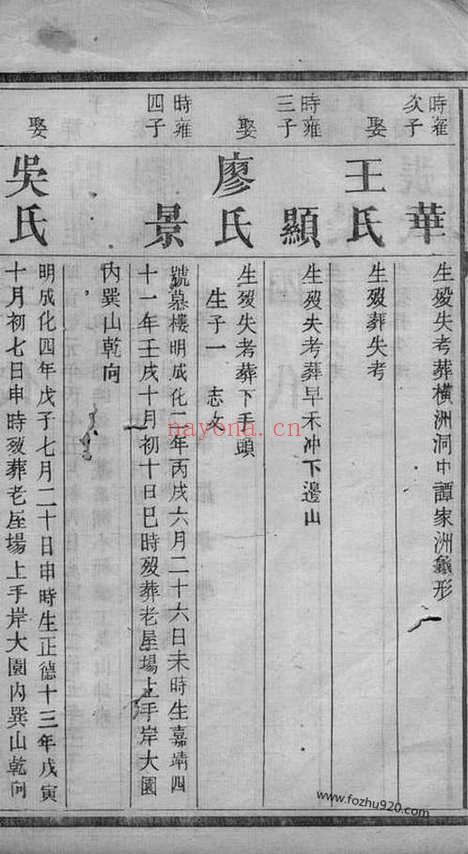 時雍次子
華
生殁失考葬橫洲洞中譚家洲龜形
娶
王氏
生殁葬失考
時雍三子
顯
生殁失考葬早禾冲下邊山
娶
廖氏
生殁失考葬下毛頭
生子一 志文
時雍四子
景
號慕樓明成化二年丙戌六月二十六日未時生嘉靖四
十一年壬戌十月初十日巳時殁葬老屋場上手岸大園
內巽山乾向
娶
吳氏
明成化四年戊子七月二十日申時生正德十三年戊寅
十月初七日申時殁葬老屋場上手岸大園內巽山乾向
nayona.cn
www.fozhu920.com